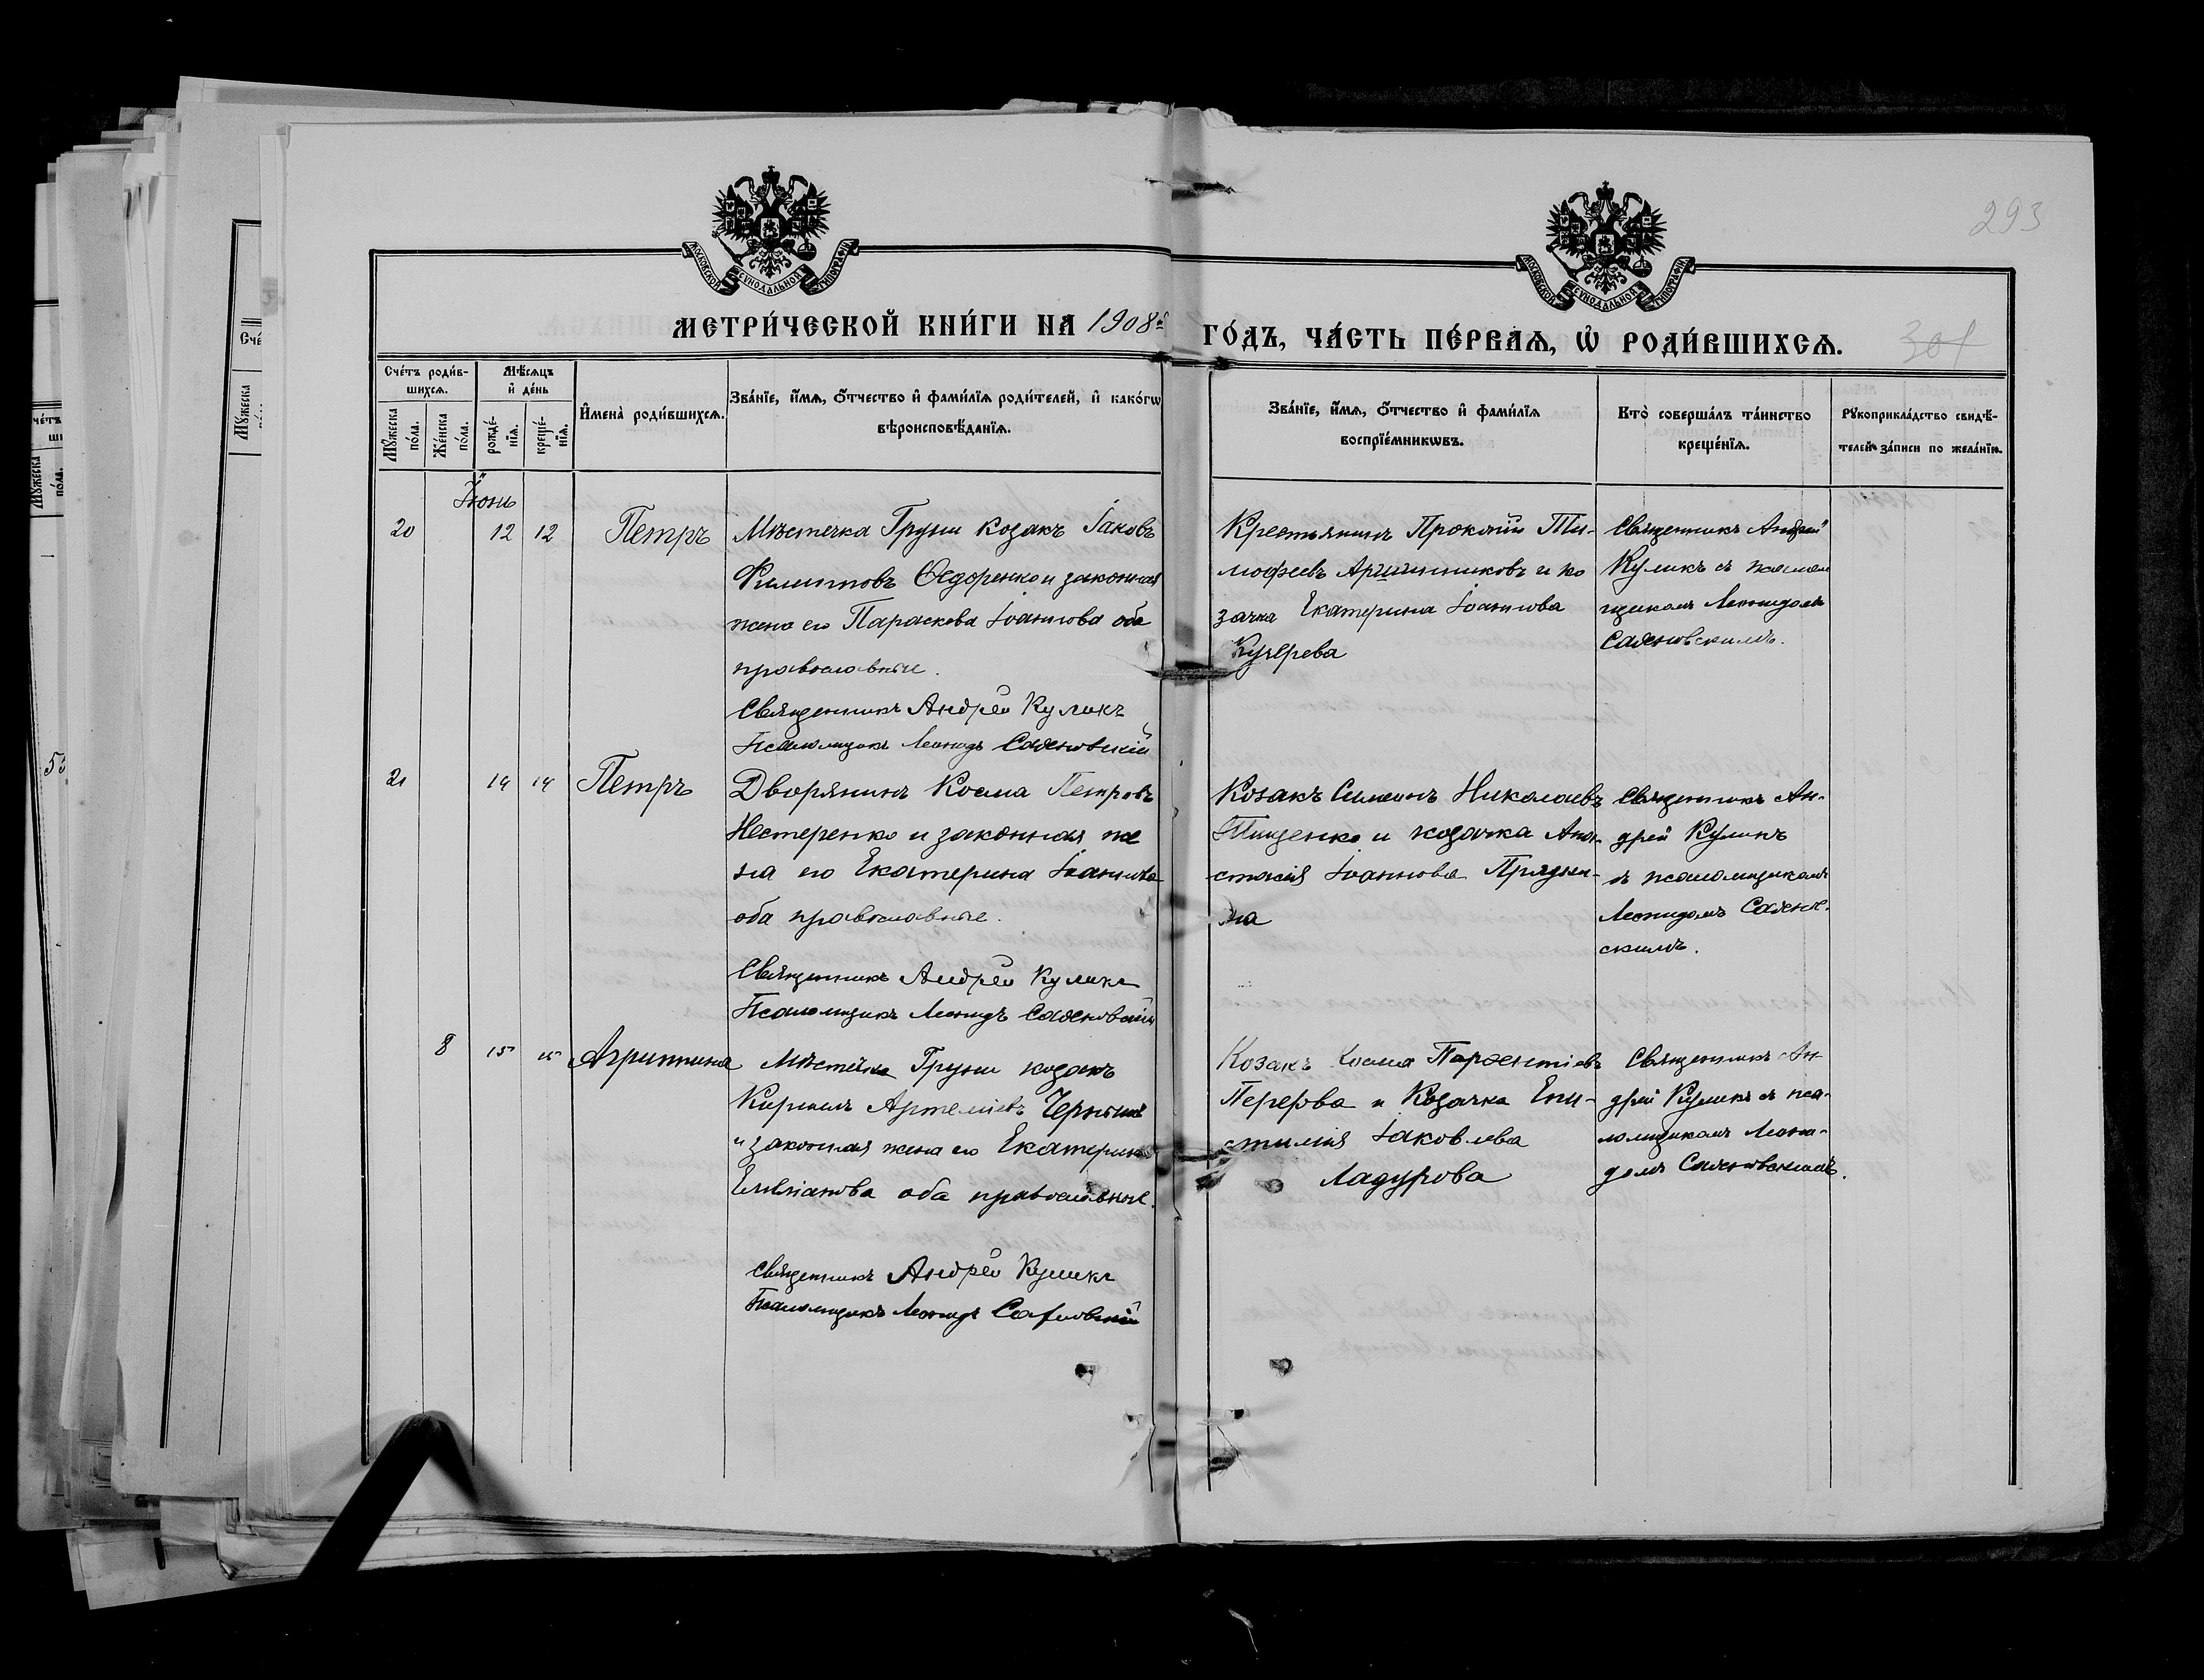 293
МОСКОВСКОЙ СѴНОДАЛЬНОЙ ТИПОГРАФІИ
МОСКОВСКОЙ СѴНОДАЛЬНОЙ ТИПОГРАФІИ
МЕТРИ́ЧЕСКОЙ КНИ́ГИ НА 1908й ГО́ДЪ, ЧА́СТЬ ПЕ́РВАѦ, Ѽ РОДИ́ВШИХСѦ.
301
Сче́тъ роди́в-
шихсѧ.
Мѣ́сѧцъ
и҆ де́нь
Мꙋ́жеска
по́ла.
Же́нска
по́ла.
рожде́-
нїѧ.
креще́-
нїѧ.
И҆мена̀ роди́вшихсѧ.
Зва́нїе, и҆́мѧ, ѻ҆́тчество и҆ фами́лїѧ роди́телей, и҆ како́гѡ
вѣроисповѣ́данїѧ.
Зва́нїе, и҆́мѧ, ѻ҆́тчество и҆ фами́лїѧ
воспрїе́мникѡвъ.
Кто̀ соверша́лъ та́инство
креще́нїѧ.
Рꙋкоприкла́дство свидѣ́-
телей за́писи по жела́нїю.
Іюнь
20
12
12
Петръ
Мѣстечка Груни козакъ Іаковъ
Филипповъ Ѳедоренко и законная
жена его Параскева Іоаннова оба
православные.
Священникъ Андрей Куликъ
Псаломщикъ Леонидъ
Крестьянинъ Прокопій Ти-
мофеевъ Аршинниковъ и ко
зачка Екатерина Іоаннова
Кучерева
Священникъ Андрей
Куликъ съ псалом
щикомъ Леонидомъ
21
14
14
Петръ
Дворянинъ Косма Петровъ
Нестеренко и законная же
на его Екатерина Іоаннова
оба православные.
Священникъ Андрей Куликъ
Псаломщикъ Леонидъ
Козакъ Симеонъ Николаевъ
Тищенко и козачка Ана-
стасія Іоаннова
на
Священникъ Ан-
дрей Куликъ
съ псаломщикомъ
Леонидомъ
скимъ.
8
15
15
Агриппина
Мѣстечка Груни козакъ
Кириллъ Артеміевъ Черныш
и законная жена его Екатерина
Емеліанова оба православные.
Священникъ Андрей Куликъ
Псаломщикъ Леонидъ
Козакъ Косма Парѳентіевъ
Перерва и Козачка Епи-
стимія Іаковлева
Ладурова
Священникъ Ан-
дрей Куликъ съ пса-
ломщикомъ Леони-
домъ